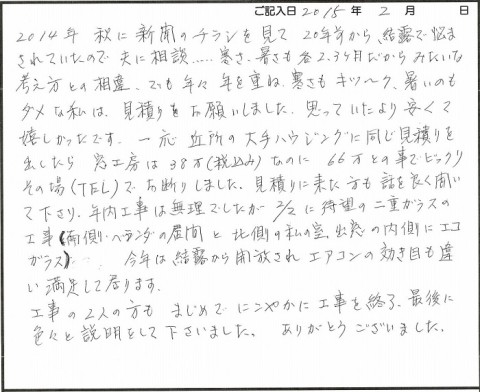 ご記入日 2015 年 2 月 日
2014年 秋に新聞のチラシを見て 20年前から、結露で悩ま
されていたので 夫に相談.....寒さ、暑さも各2.3ヶ月だからみたいな
考え方との相違、でも年々 年を重ね、寒さもキツ〜ク、暑いのも
ダメな私は、見積りをお願いしました。思っていたより安くて
嬉しかったです。一応 近所の大手ハウジングに同じ見積りを
出したら 窓工房は38万(税込み)なのに 66万との事でビックリ
その場(TEL)でお断りしました。見積りに来た方も話を良く聞い
て下さり、年内工事は無理でしたが 2/2に待望の二重ガラスの
工事(南側・ベランダの居間と北側の私の室、出窓の内側にエコ
ガラス) 今年は結露から開放され エアコンの効き目も違
い満足して居ります。
工事の2人の方も まじめで にこやかに工事を終了、最後に
色々と説明をして下さいました。 ありがとうございました。